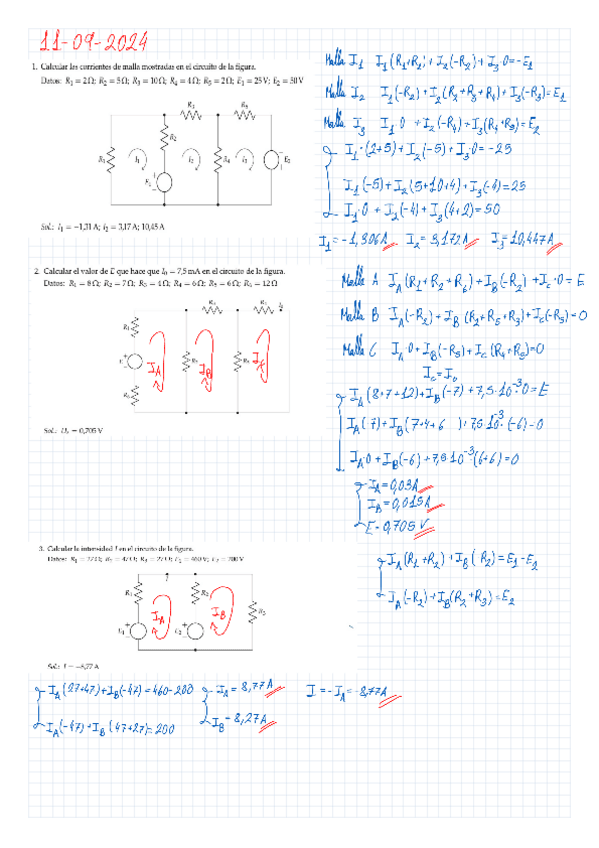 11-09-2024
1. Calcular las corrientes de malla mostradas en el circuito de la figura.
Datos: R₁ = 2 Ω; R₂ = 5 Ω; R₃ = 10 Ω; R₄ = 4 Ω; R₅ = 2 Ω; E₁ = 25 V; E₂ = 50 V
R₃ R₅
R₂
R₁ I₁ I₂ R₄ I₃ E₂
E₁
Sol.: I₁ = −1,31 A; I₂ = 3,17 A; 10,45 A
Malla I₁ I₁(R₁+R₂)+I₂(-R₂)+I₃·0=-E₁
Malla I₂ I₁(-R₂)+I₂(R₂+R₃+R₄)+I₃(-R₄)=E₁
Malla I₃ I₁·0 +I₂(-R₄)+I₃(R₄+R₅)=E₂
I₁·(2+5)+I₂(-5)+I₃·0=-25
I₁(-5)+I₂(5+10+4)+I₃(-4)=25
I₁·0+I₂(-4)+I₃(4+2)=50
I₁=-1,306A I₂=3,172A I₃=10,447A
2. Calcular el valor de E que hace que I₀ = 7,5 mA en el circuito de la figura.
Datos: R₁ = 8 Ω; R₂ = 7 Ω; R₃ = 4 Ω; R₄ = 6 Ω; R₅ = 6 Ω; R₆ = 12 Ω
I_A I_B I_C
Sol.: = 0,705 V
Malla A I_A(R₁+R₂+R₆)+I_B(-R₂)+I_C·0=E
Malla B I_A(-R₂)+I_B(R₂+R₅+R₃)+I_C(-R₅)=0
Malla C I_A·0+I_B(-R₅)+I_C(R₄+R₅)=0
I_C=I₀
I_A(8+7+12)+I_B(-7)+7,5·10⁻³·0=E
I_A(-7)+I_B(7+4+6)+7,5·10⁻³·(-6)=0
I_A·0+I_B(-6)+7,5·10⁻³(6+6)=0
I_A=0,03A
I_B=0,015A
E=0,705 V
3. Calcular la intensidad I en el circuito de la figura.
Datos: R₁ = 27 Ω; R₂ = 47 Ω; R₃ = 27 Ω; E₁ = 460 V; E₂ = 200 V
R₁ R₂ R₃
I_A I_B
Sol.: I = −8,77 A
I_A(R₁+R₂)+I_B(R₂)=E₁-E₂
I_A(-R₂)+I_B(R₂+R₃)=E₂
I_A(27+47)+I_B(-47)=460-200
I_A(-47)+I_B(47+27)=200
I_A=8,77A
I_B=8,27A
I=-I_A=-8,77A